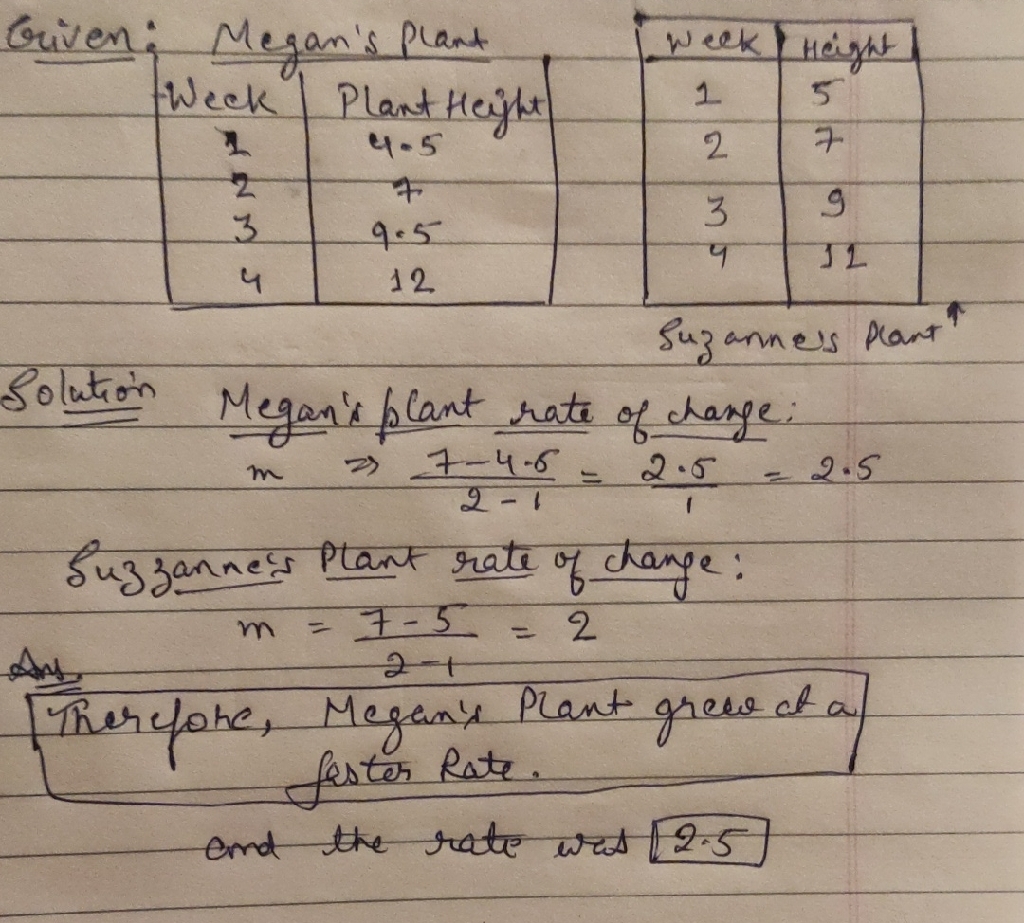 Given: Megan's Plant
Week Plant Height
1 4.5
2 7
3 9.5
4 12
Week Height
1 5
2 7
3 9
4 11
Suzanne's Plant ↑
Solution Megan's plant rate of change:
m ⇒ 7-4.5/2-1 = 2.5/1 = 2.5
Suzzanne's Plant rate of change:
m = 7-5/2-1 = 2
Ans
Therefore, Megan's Plant grew at a
faster Rate.
and the rate was 2.5